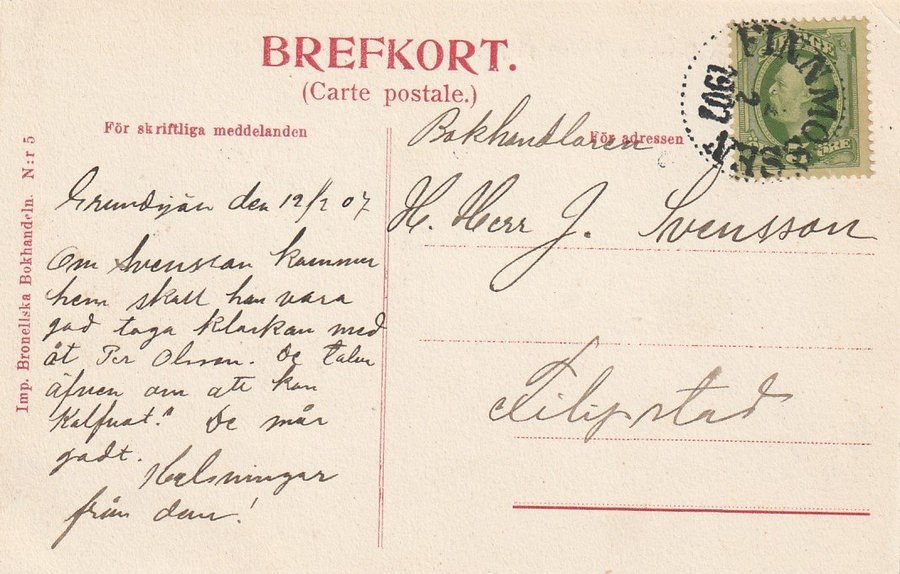 BREFKORT.
(Carte postale.)
För skriftliga meddelanden
För adressen
Imp. Bronellska Bokhandeln. N:r 5
FINNMOSSEN
2
1907
ÖRE
Bokhandlaren
H. Herr J. Svensson
Filipstad
Grundsjön den 12/2 07
Om Svensson kommer
hem skall han vara
god taga klockan med
åt Per Olsson. De talar
äfven om att kon
kalfvat. De mår
godt.
Helsningar
från dem!